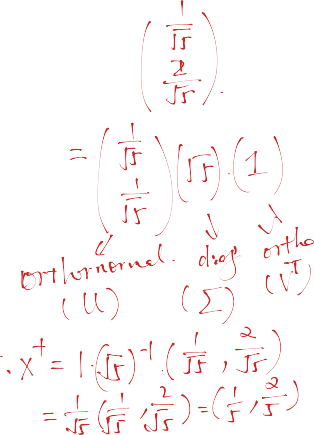 ( 1/√5
2/√5 ).
= ( 1/√5
1/√5 ) (√5) . (1)
orthornormal. diag ortho
(U) (Σ) (Vᵀ)
. X⁺ = 1.(√5)⁻¹.( 1/√5 , 2/√5 )
= 1/√5 ( 1/√5 , 2/√5 ) = ( 1/5 , 2/5 )